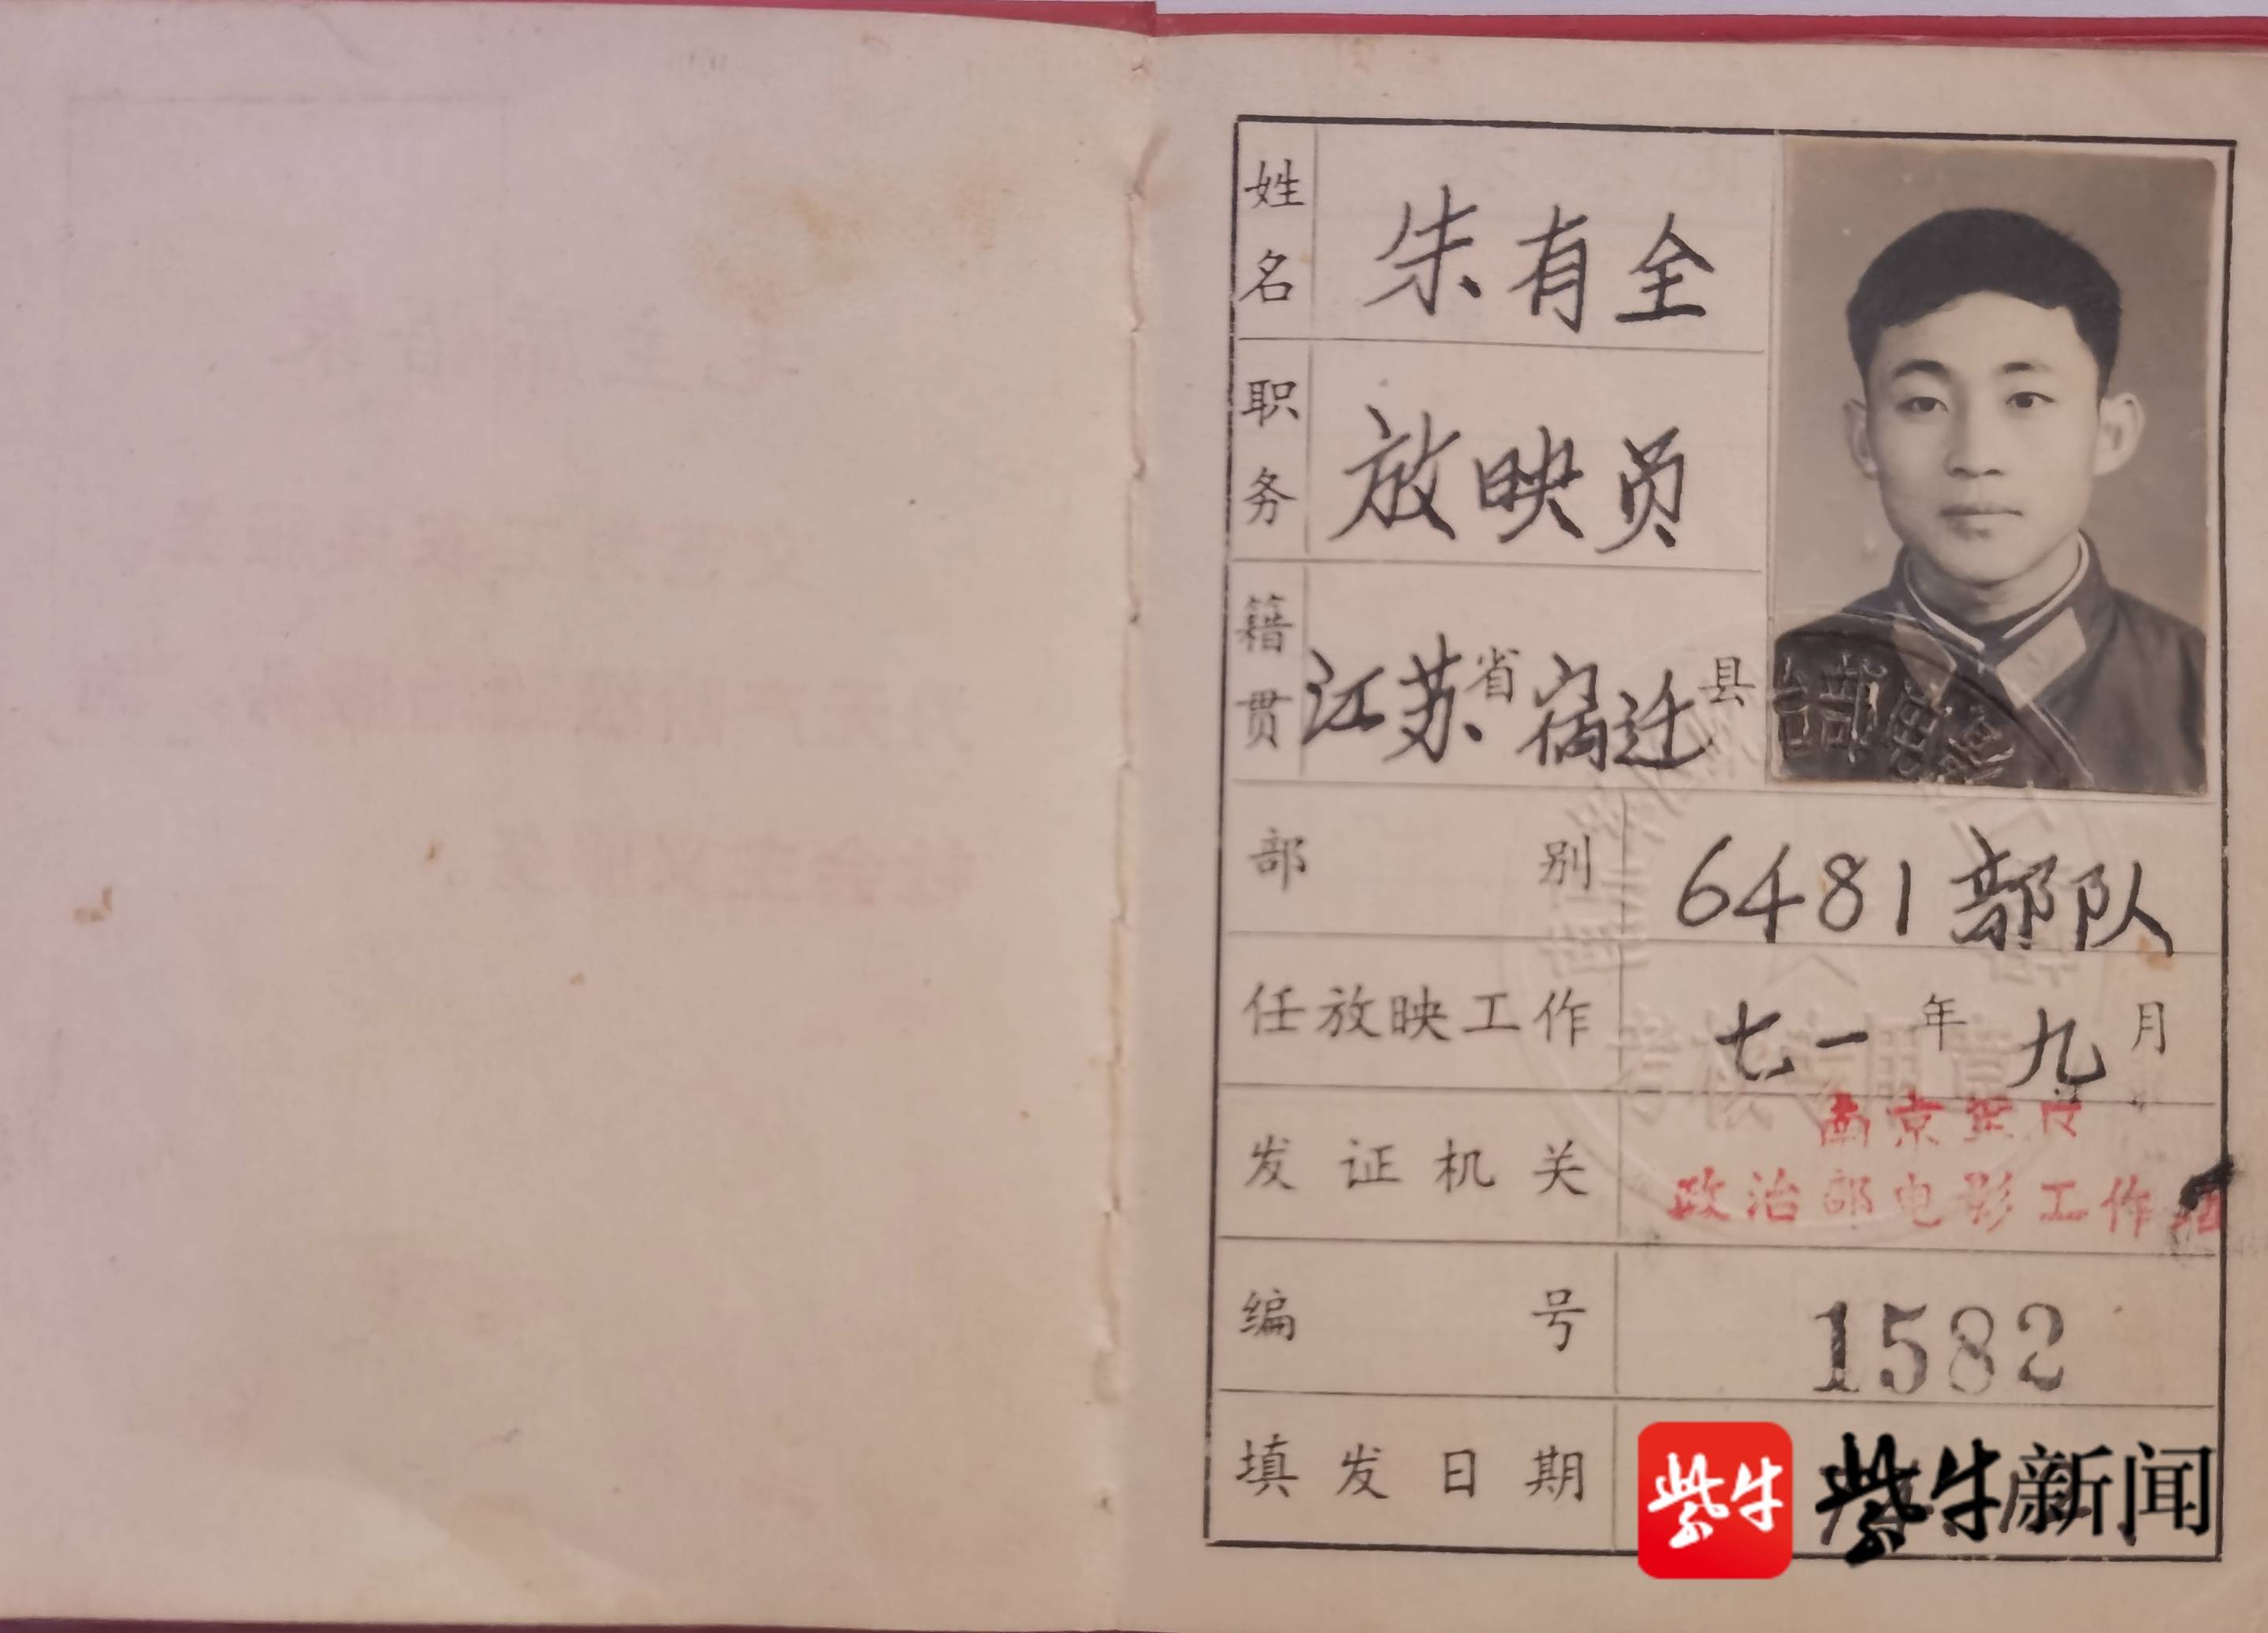 姓名 朱有全
职务 放映员
籍贯 江苏省宿迁县
部别 6481部队
任放映工作 七一年九月
发证机关 南京军区
政治部电影工作站
编号 1582
填发日期
紫牛 紫牛新闻
考核专用章